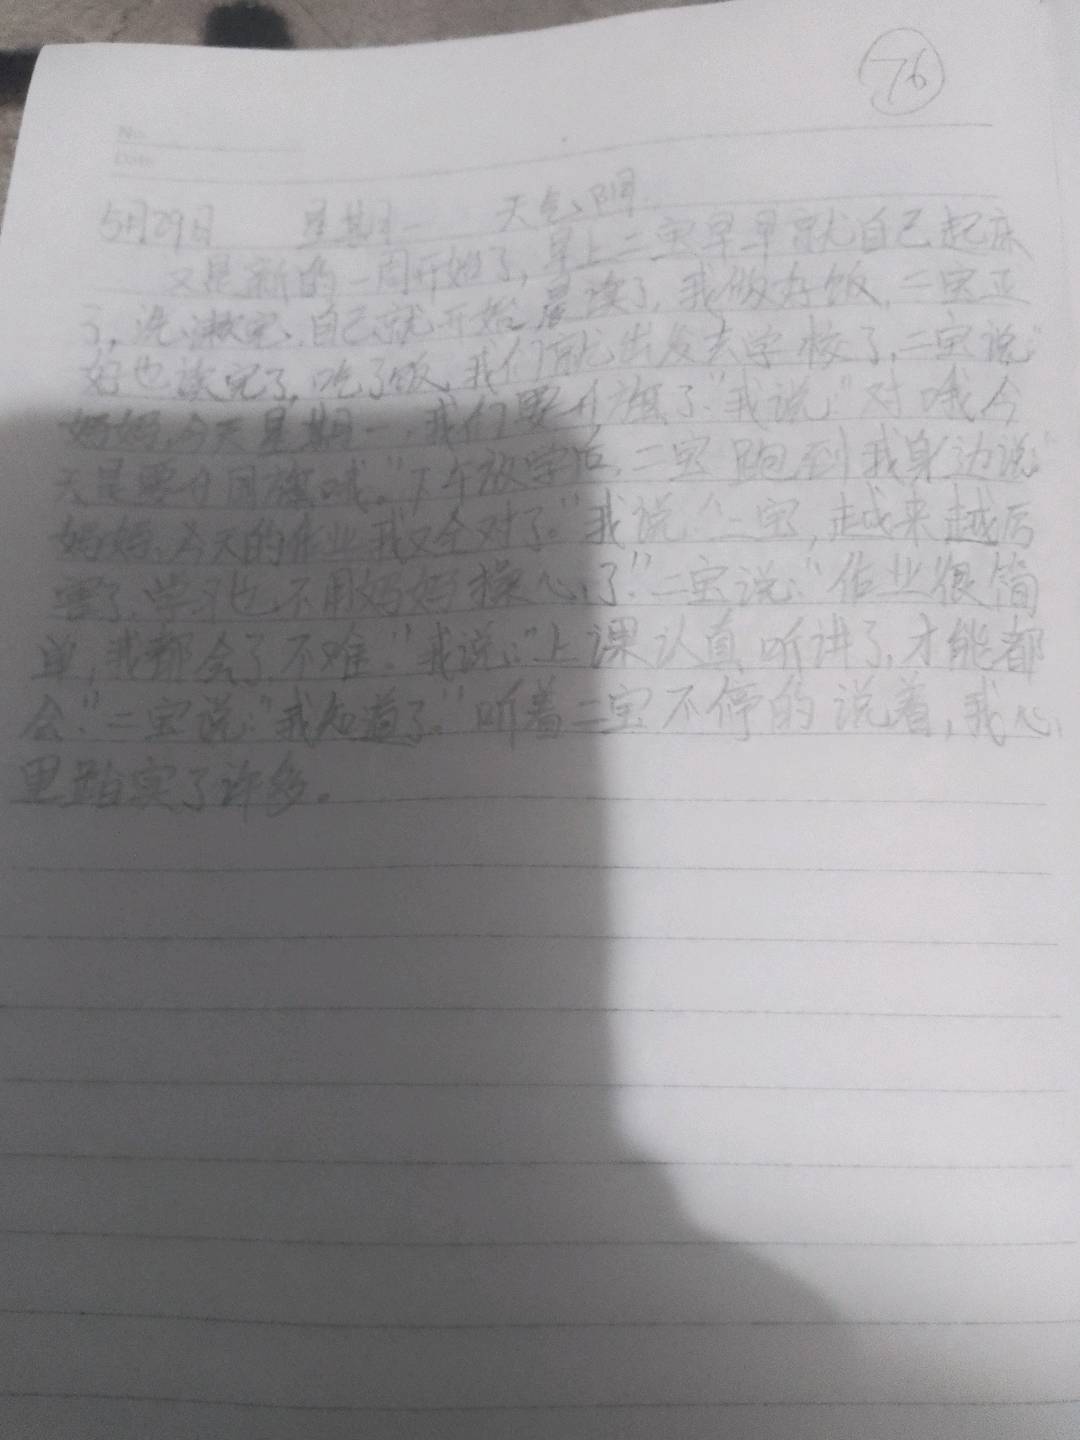 76
No.
Date
5月29日 星期一 天气阴
又是新的一周开始了,早上二宝早早就自己起床
了,洗漱完,自己就开始晨读了,我做好饭,二宝正
好也读完了,吃了饭,我们就出发去学校了,二宝说:"
妈妈,今天星期一,我们要升旗了."我说:"对哦今
天是要升国旗哦。"下午放学后,二宝跑到我身边说:"
妈妈,今天的作业我又全对了。"我说:"二宝,越来越厉
害了,学习也不用妈妈操心了."二宝说:"作业很简
单,我都会了不难."我说:"上课认真听讲了,才能都
会."二宝说:"我知道了."听着二宝不停的说着,我心
里踏实了许多。